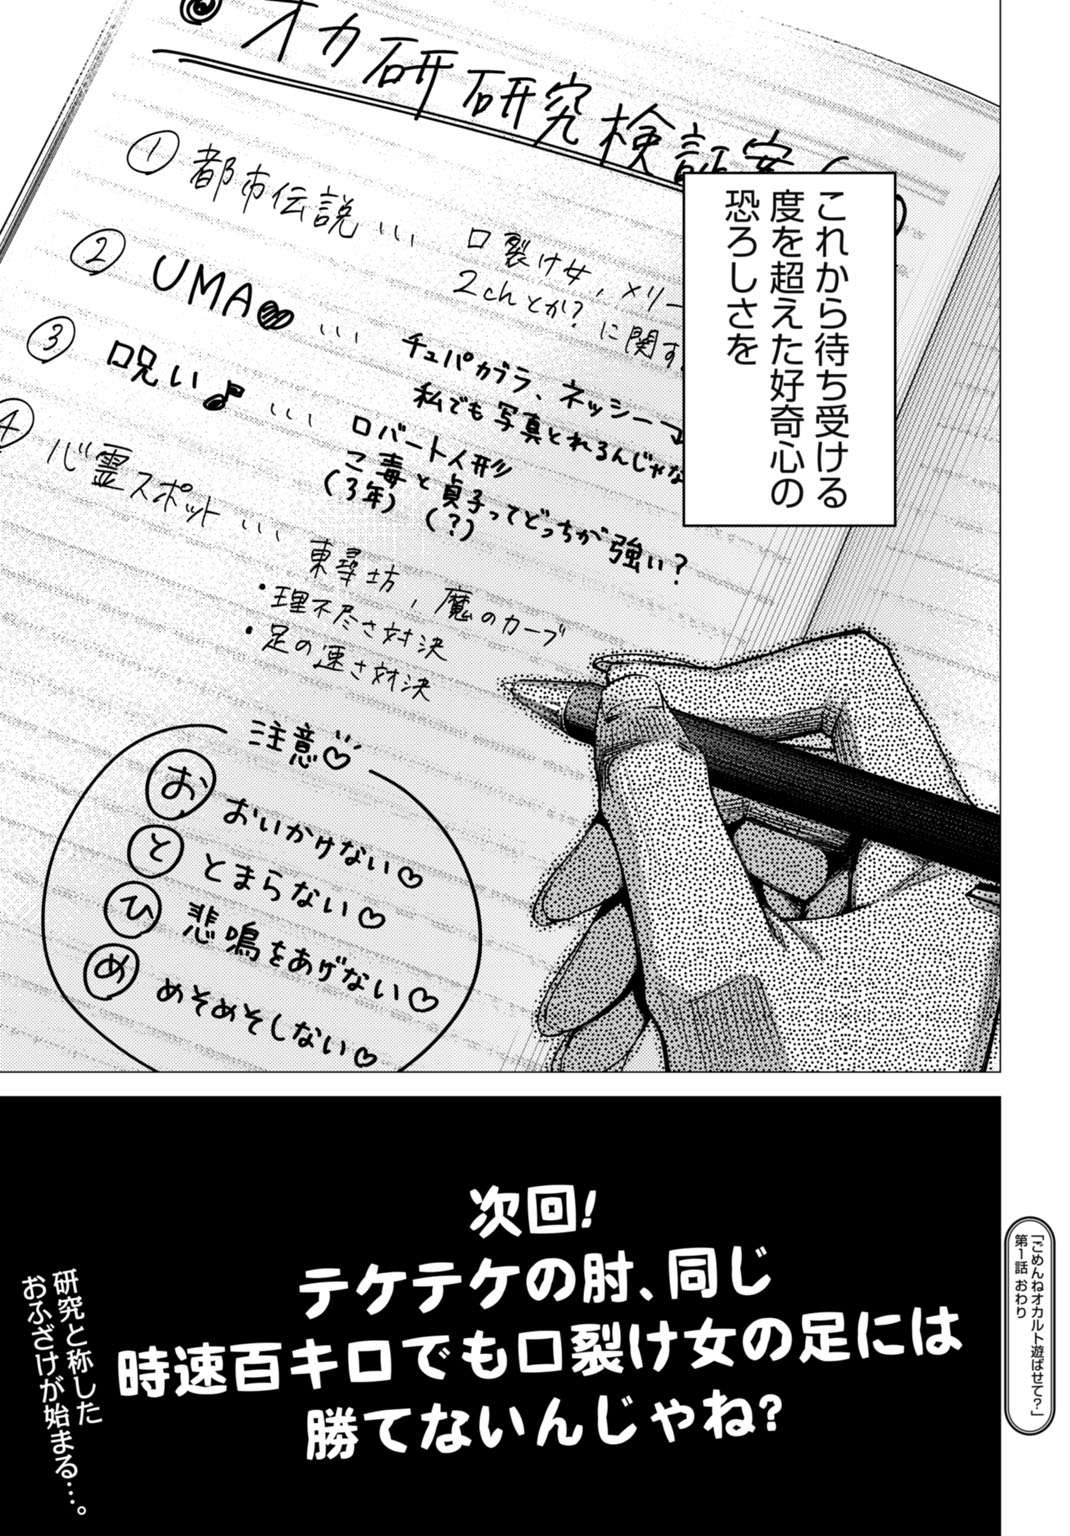 これから待ち受ける
度を超えた好奇心の
恐ろしさを
オカ研研究検証案
① 都市伝説…
口裂け女、メリー
2chとか?に関す
② UMA♥…
チュパカブラ、ネッシー→
私でも写真とれるんじゃな
③ 呪い♪…
ロバート人形
こ毒と貞子ってどっちが強い?
(3年)(?)
④ 心霊スポット…
東尋坊、魔のカーブ
・理不尽さ対決
・足の速さ対決
注意♡
お おいかけない♡
と とまらない♡
ひ 悲鳴をあげない♡
め めそめそしない♡
次回!
テケテケの肘、同じ
時速百キロでも口裂け女の足には
勝てないんじゃね?
研究と称した
おふざけが始まる…。
「ごめんねオカルト遊ばせて?」
第1話 おわり